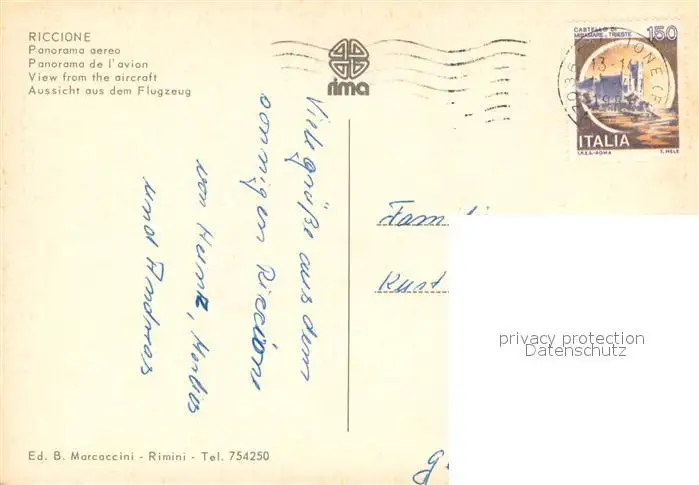 RICCIONE
Panorama aereo
Panorama de l'avion
View from the aircraft
Aussicht aus dem Flugzeug
rima
CASTELLO DI
MIRAMARE - TRIESTE
150
ITALIA
I.P.Z.S.-ROMA
T. MELE
Viele grüße aus dem
sonnigen Riccione
von
und Andreas
Fam
Kurt
privacy protection
Datenschutz
Ed. B. Marcaccini - Rimini - Tel. 754250